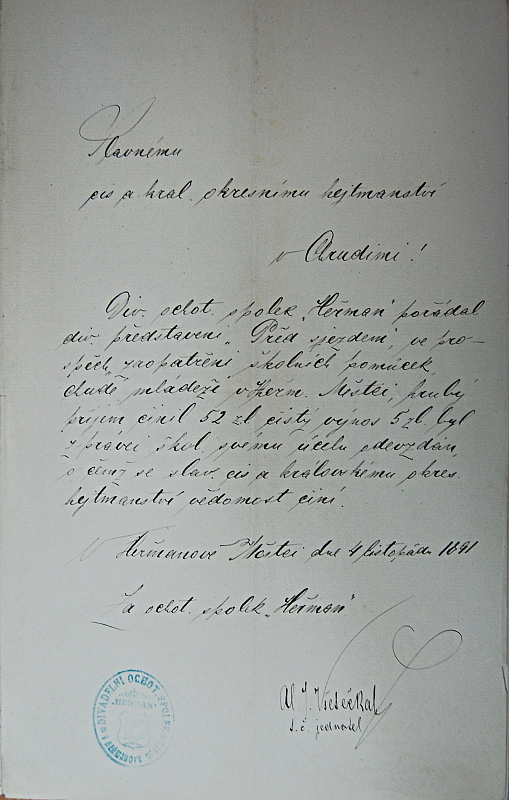 Slavnému
cis a. král. okresnímu hejtmanství
v Chrudimi!
Div. ochot. spolek „Heřman“ pořádal
div. představení „Před sjezdem“, ve pro-
spěch „zaopatření školních pomůcek
chudé mládeži v Heřm. Městci, hrubý
příjem činil 52 zl čistý výnos 5 zl. byl
zprávci škol. svému účelu odevzdán,
o čemž se slav. cis a královskému okres.
hejtmanství vědomost činí.
V Heřmanově Městci dne 4 listopadu 1891
Za ochot. spolek „Heřman“
Al. J.
t. č. jednatel
DIVADELNÍ OCHOT. SPOLEK
„HEŘMAN“